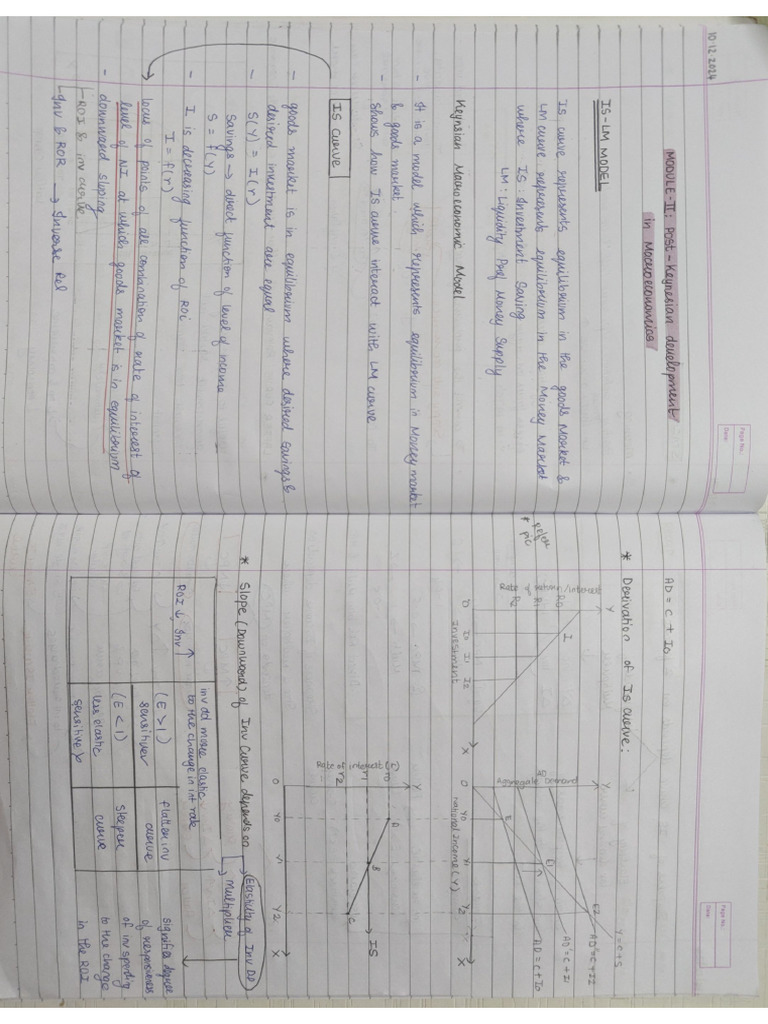 10.12.2024
Page No.:
Date:
MODULE-II: Post-Keynesian development
in Macroeconomics
IS-LM MODEL
IS curve represents equilibrium in the goods Market &
LM curve represents equilibrium in the Money Market
where IS: Investment Saving
LM: Liquidity Pref Money Supply
Keynisian Macroeconomic Model
- It is a model which represents equilibrium in Money market
& goods market.
- Shows how IS curve interact with LM curve
IS CURVE
- goods market is in equilibrium where desired savings &
desired investment are equal
S(Y) = I(r)
- Savings → direct function of level of income
S = f(Y)
- I is decreasing function of ROI
I = f(r)
locus of points of all combination of rate of interest &
level of NI at which goods market is in equilibrium
- downward sloping
- ROI & inv curve
- Inv & ROR → Inverse Rel
Page No.:
Date:
AD = C + I0
* Derivation of IS curve:
Refer
* pic
Y
Rate of return/interest
R0
R1
R2
I
O
I0
I1
I2
Investment
X
Y
Aggregate Demand
AD
Y = C + S
AD'' = C + I2
AD' = C + I1
AD = C + I0
E2
E1
E
O
Y0
Y1
Y2
National Income (Y)
X
Y
Rate of interest (r)
r0
r1
r2
A
B
C
IS
O
Y0
Y1
Y2
X
* Slope (Downward) of Inv Curve depends on
Elasticity of Inv DD
Multiplier
ROI ↓ Inv ↑
inv dd more elastic
to the change in int rate
(E > 1)
sensitiver
flatten inv
curve
(E < 1)
less elastic
sensitive
Steeper
curve
signifies degree
of responsiveness
of inv spending
to the change
in the ROI